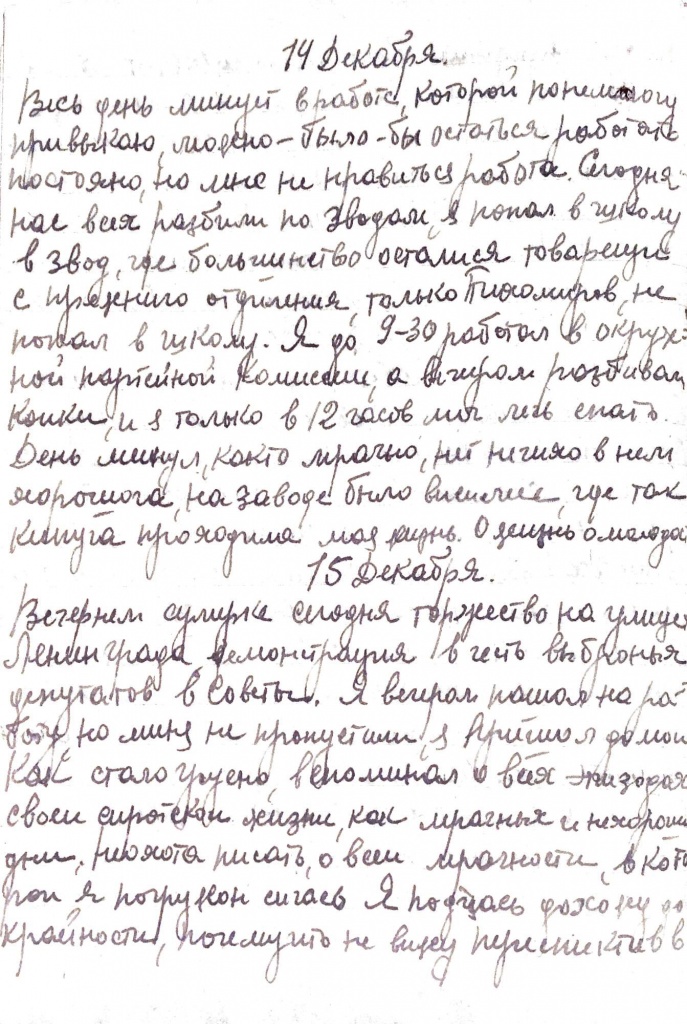 14 Декабря.
Весь день минует в работе, которой понемногу
привыкаю, можно-было-бы остаться работать
постояно, но мне не нравиться работа. Сегодня
нас всех разбили по Зводам, я попал в школу
в Звод, где большинство осталися товарищи
с прежнего отделения, только Тихомиров, не
попал в школу. Я до 9-30 работал в окруж-
ной партейной комиссии, а вечером разбивал
койки, и я только в 12 часов мог лечь спать.
День минул, както мрачно, нет ничего в нем
хорошога, на заводе было виселее, где так
проходила моя жизнь. О жизнь о молодая
15 Декабря.
Вечернем сумирке сегодня торжество на улицах
Ленинграда, демонстрация в честь выбраных
депутатов в Советы. Я вечером пошол на ра-
боту, но миня не пропустили, я пришол домой
Как стало грусно, вспоминал о всех эпизодах
своей сиротской жизни, как мрачных и нехороших
дни, неохота писать, о всей мрачности, в кото
рой я погружон сичась Я подчась дохожу до
крайности, почемуто не вижу перспектив в